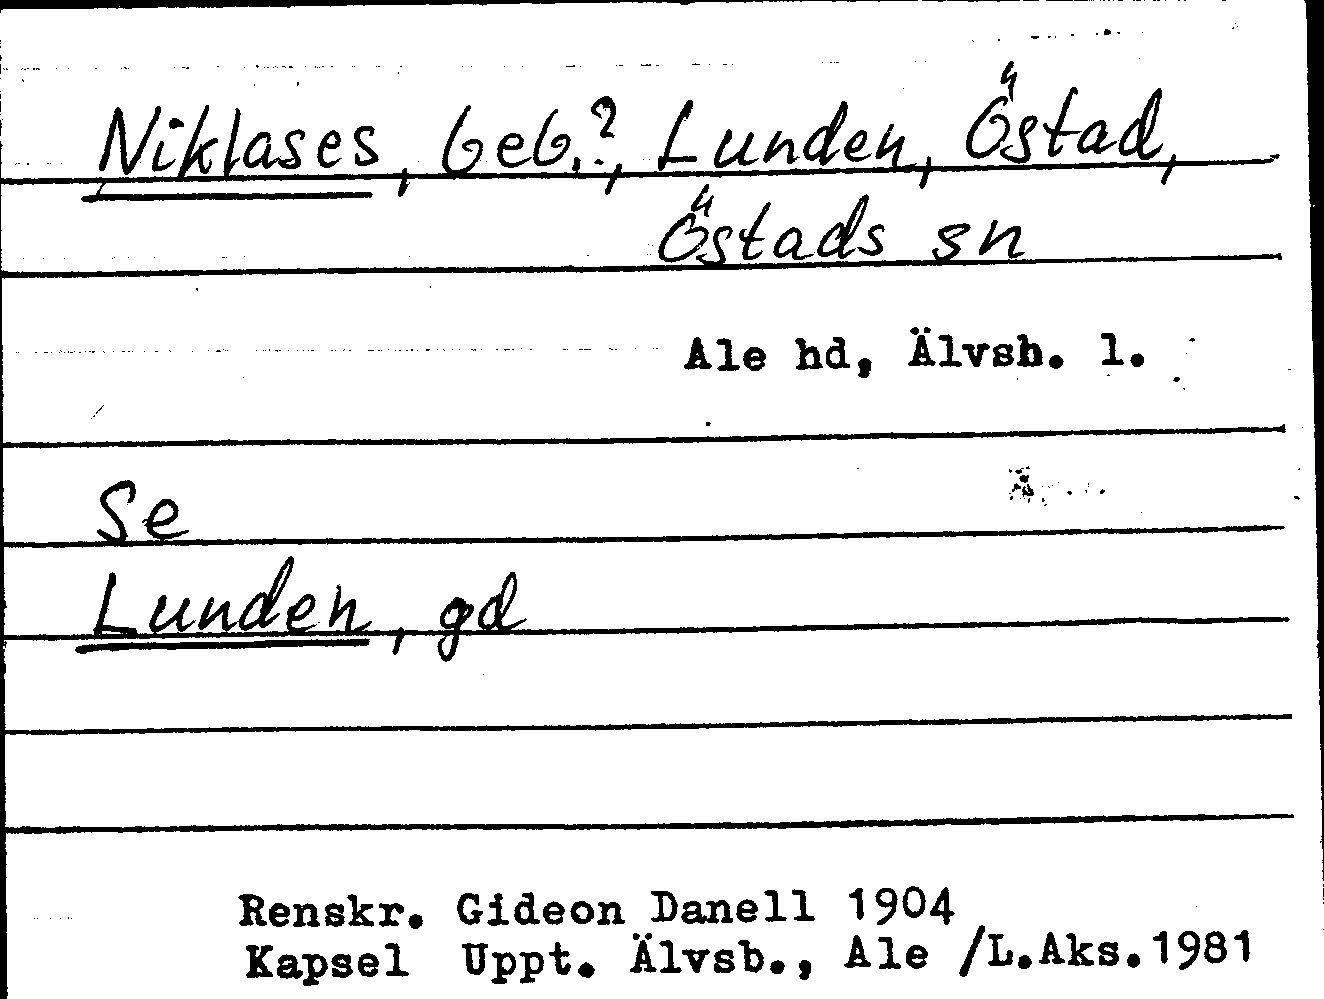 Niklases, beb.?, Lunden, Östad,
Östads sn
Ale hd, Älvsb. l.
Se
Lunden, gd
Renskr. Gideon Danell 1904
Kapsel Uppt. Älvsb., Ale /L.Aks.1981